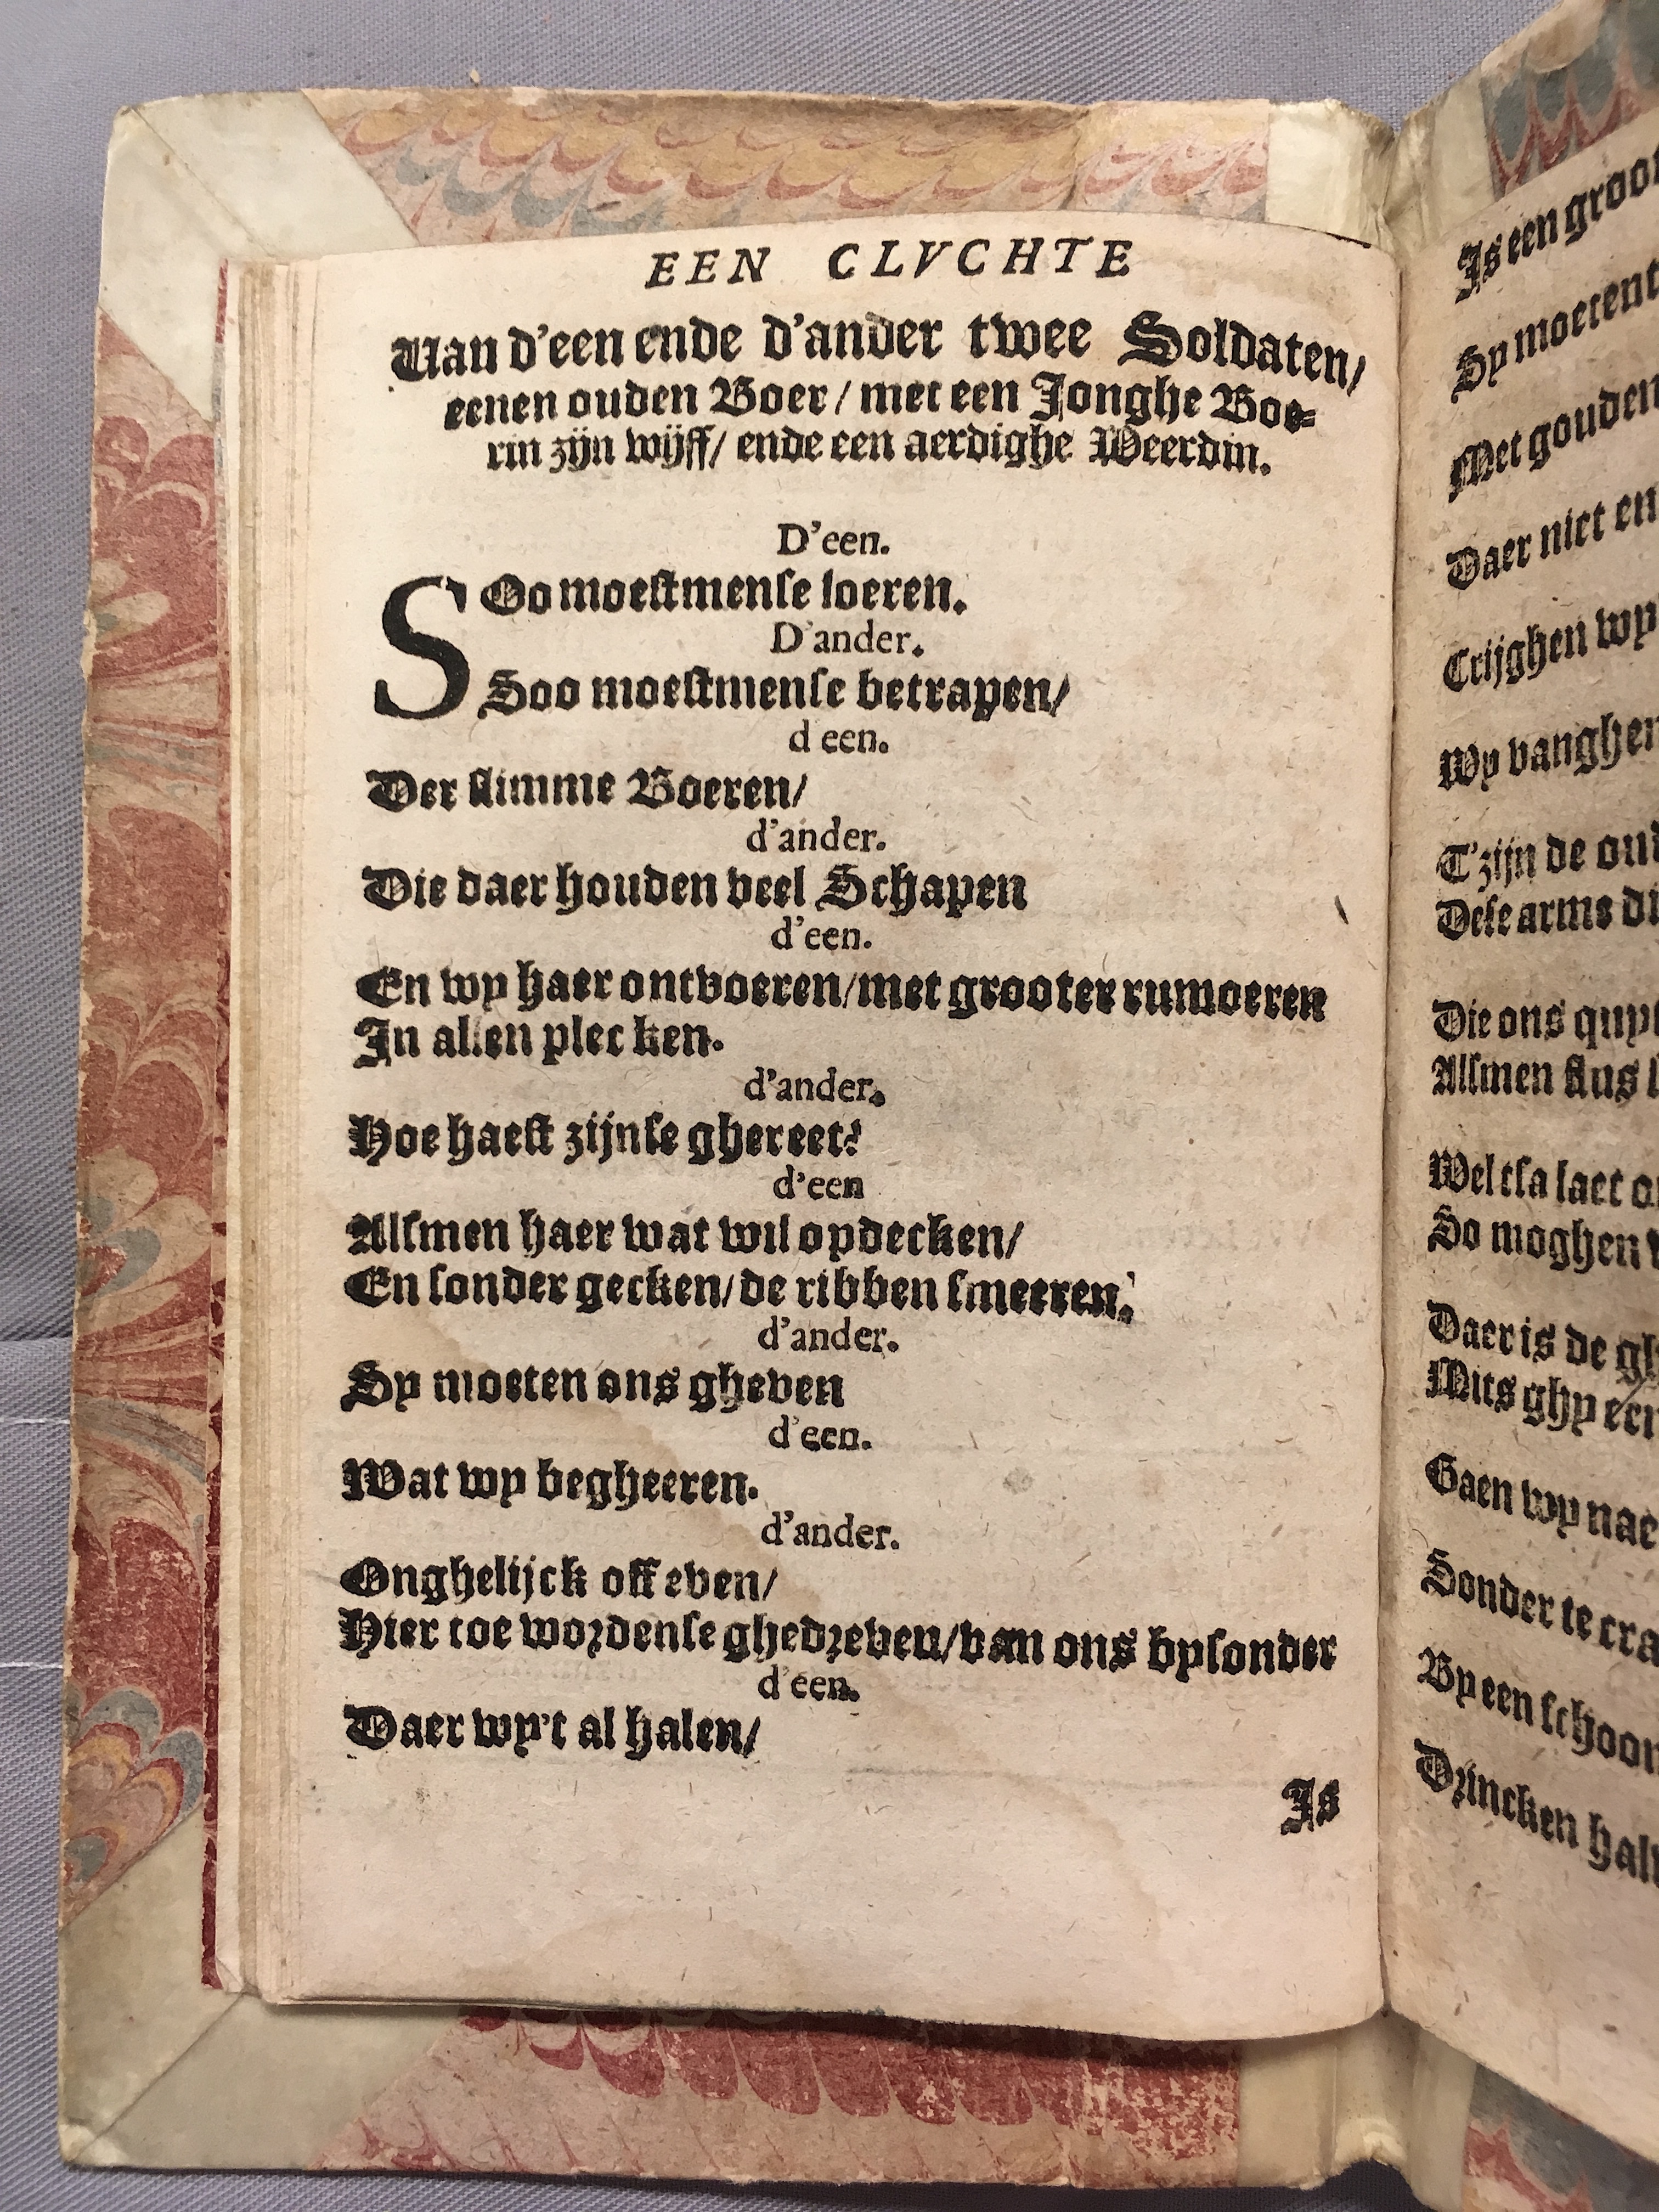 EEN CLVCHTE
Van d'een ende d'ander twee Soldaten/
eenen ouden Boer / met een Jonghe Boe-
rin zijn wijff/ ende een aerdighe Weerdin.
D'een.
SOo moestmense loeren.
D'ander.
Soo moestmense betrapen/
d een.
Der slimme Boeren/
d'ander.
Die daer houden veel Schapen
d'een.
En wy haer ontvoeren/met grooter rumoeren
In allen plecken.
d'ander.
Hoe haest zijnse ghereet?
d'een
Alsmen haer wat wil opdecken/
En sonder gecken/de ribben smeeren.
d'ander.
Sy moeten ons gheven
d'een.
Wat wy begheeren.
d'ander.
Onghelijck off even/
Hier toe wordense ghedreven/van ons bysonder
d'een.
Daer wy't al halen/
Is
Is een
Sy moetent
Met gouden
Daer niet en
Crijghen wy
Wy
T'zijn de
Dese arms
Die ons
Alsmen slus
Wel tsa laet
So moghen
Daer is de
Mits ghy
Gaen wy
Sonder te
By een
Drincken